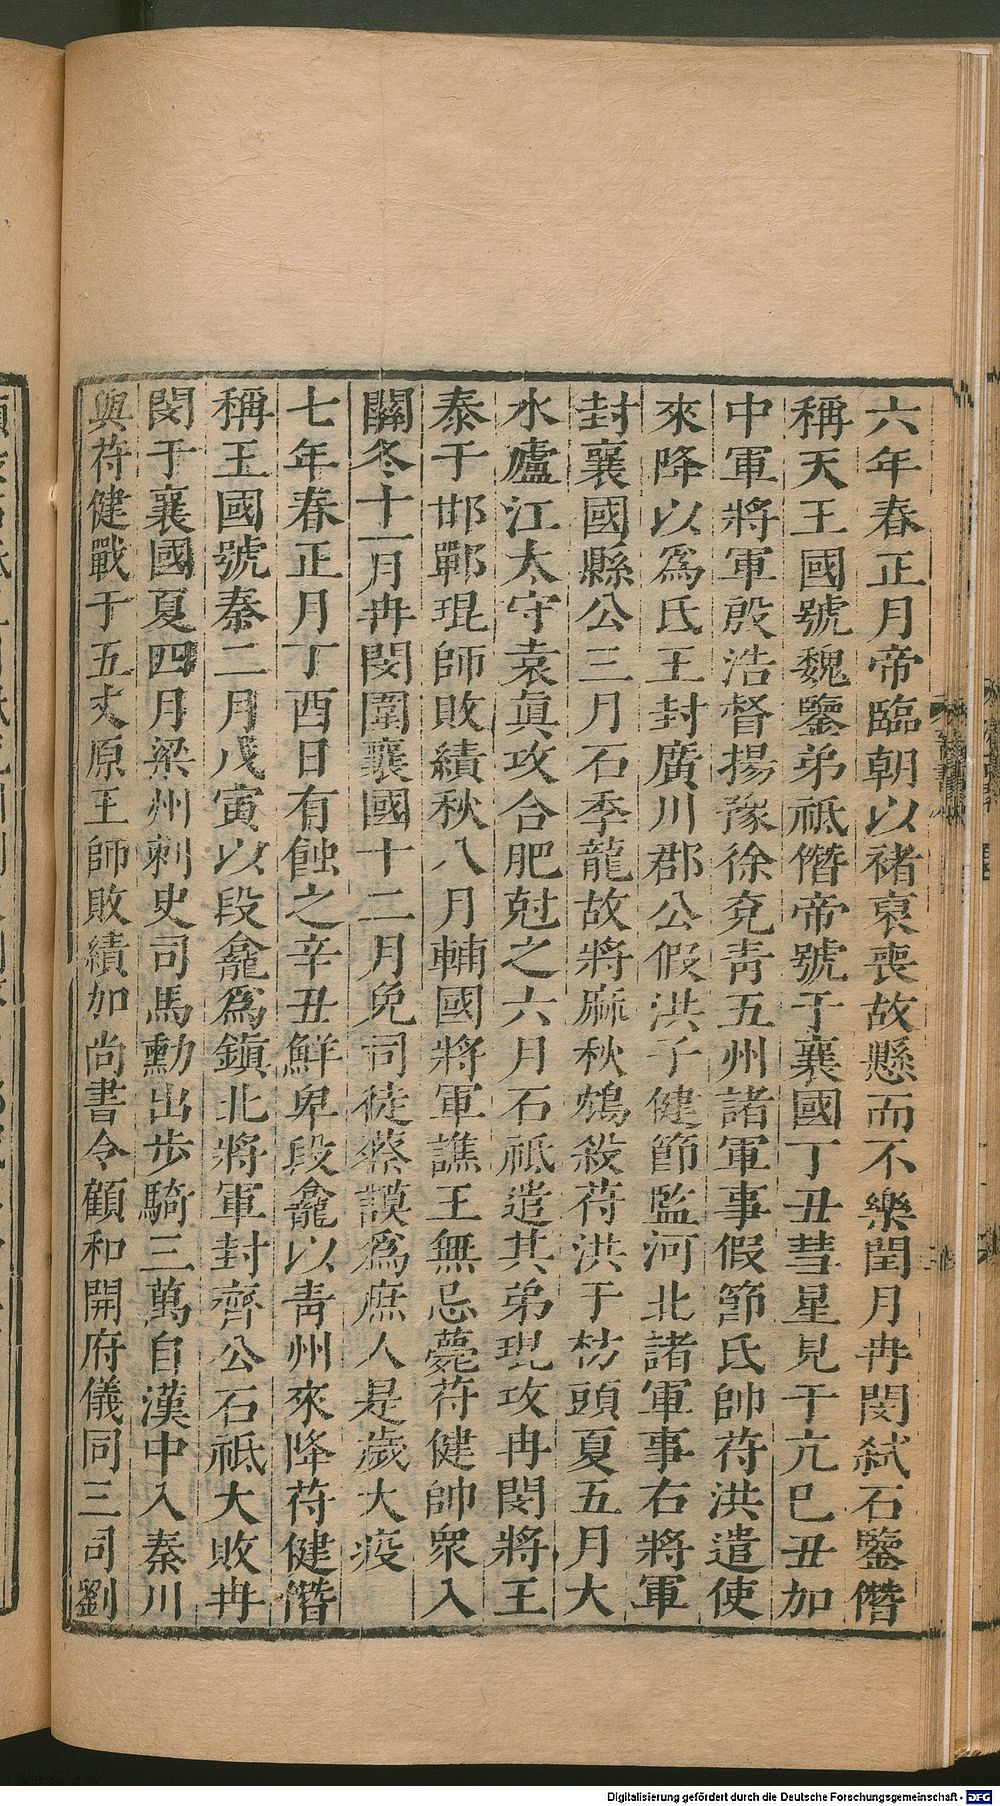 六年春正月帝臨朝以褚裒喪故懸而不樂閏月冉閔弒石鑒僭
稱天王國號魏鑒弟祗僭帝號于襄國丁丑彗星見于亢巳丑加
中軍將軍殷浩督揚豫徐兗青五州諸軍事假節氐帥苻洪遣使
來降以爲氐王封廣川郡公假洪子健節監河北諸軍事右將軍
封襄國縣公三月石季龍故將麻秋鴆殺苻洪于枋頭夏五月大
水廬江太守袁眞攻合肥尅之六月石祗遣其弟琨攻冉閔將王
泰于邯鄲琨師敗績秋八月輔國將軍譙王無忌薨苻健帥衆入
關冬十一月冉閔圍襄國十二月免司徒蔡謨爲庶人是歲大疫
七年春正月丁酉日有蝕之辛丑鮮卑段龕以青州來降苻健僭
稱王國號秦二月戊寅以段龕爲鎭北將軍封齊公石祗大敗冉
閔于襄國夏四月梁州刺史司馬勳出步騎三萬自漢中入秦川
與苻健戰于五丈原王師敗績加尚書令顧和開府儀同三司劉
Digitalisierung gefördert durch die Deutsche Forschungsgemeinschaft - DFG